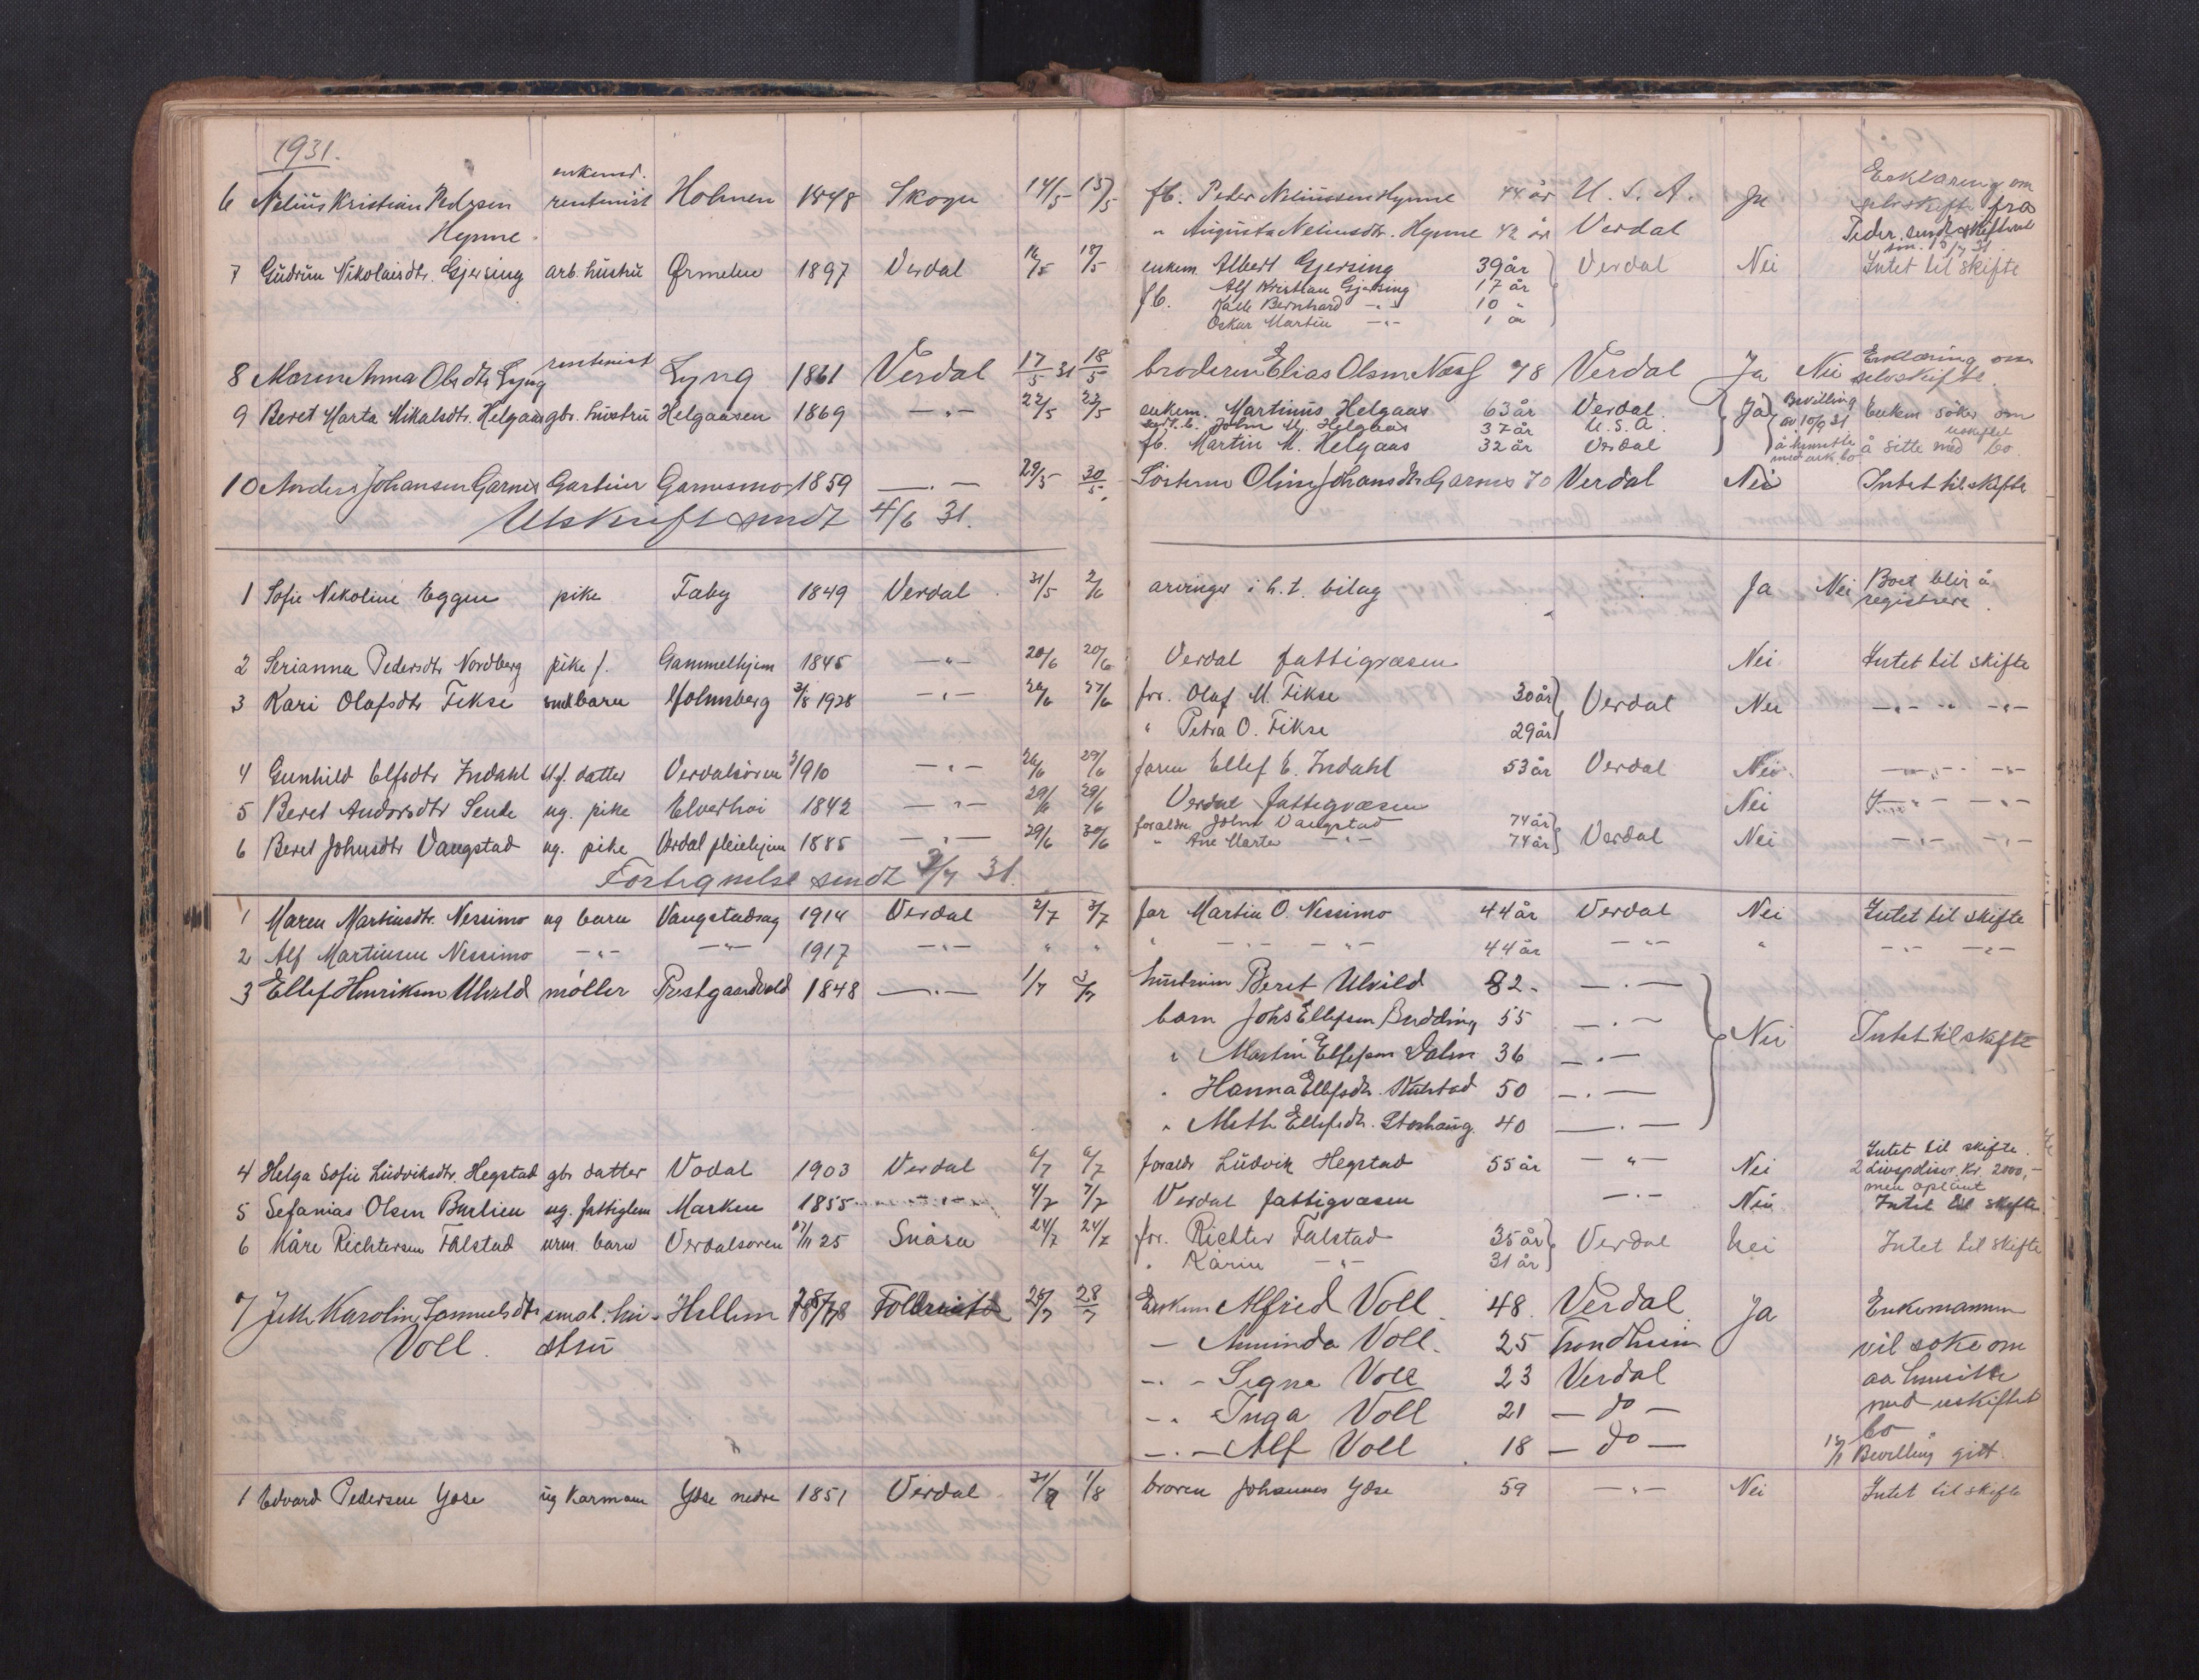 1931.
enkemd.
6 Nelius Kristian Pedersen rentenist Holmen 1848 Skogn 14/5 15/5 fb. Peder Neliussen Hynne 44 år U.S.A. Ja Erklæring om
Hynne. " Augusta Neliusdtr. Hynne 42 år Verdal fra
Peder sendt skifteret
7 Gudrun Nikolaisdtr. Gjersing arb. hustru Ørmelen 1897 Verdal 16/5 18/5 enkem. Albert Gjersing 39 år Verdal Nei Intet til skifte
fb. Alf Kristian Gjersing 17 år
Kalle Bernhard -"- 10 "
Oskar Martin -"- 1 år
8 Maren Anna Olsdtr Lyng rentenist Lyng 1861 Verdal 17/5 31 18/5 broderen Elias Olsen Næss 78 Verdal Ja Nei Erklæring om
selvskifte.
9 Beret Marta Mikalsdtr. Helgaas gbr. hustru Helgaasen 1869 -"- 22/5 23/5 enkem. Martinus Helgaas 63 år Verdal Ja Bevilling Enkem søker om
John M. Helgaas 37 år U.S.A. av 10/9 31 uskiftet
fb. Martin M. Helgaas 32 år Verdal å hensitte å sitte med bo
med usk. bo
10 Anders Johansen Garnes Gartner Garnesmo 1859 -"- 29/5 30/5 Søsteren Oline Johansdtr Garnes 70 Verdal Nei Intet til skifte
Utskrift sendt 4/6 31.
1 Sofie Nikoline Eggen pike Faby 1849 Verdal 31/5 2/6 arvinger i h.t. bilag Ja Nei Boet blir å
registrere.
2 Serianna Pedersdtr Nordberg pike f. Gammelhjem 1845 -"- 20/6 20/6 Verdal fattigvæsen Nei Intet til skifte
3 Kari Olafsdtr Fikse småbarn Holmsberg 3/8 1928 -"- 26/6 27/6 for. Olaf M. Fikse 30 år Verdal Nei -"- -"-
" Petra O. Fikse 29 år
4 Gunhild Elfsdtr Indahl datter Verdalsøren 1910 -"- 26/6 29/6 faren Ellef E. Indahl 53 år Verdal Nei -"- -"-
5 Beret Andorsdtr Sende ug. pike Elverhøi 1842 -"- 29/6 29/6 Verdal fattigvæsen Nei -"- -"-
6 Beret Johnsdtr Vangstad ug. pike Verdal pleiehjem 1885 -"- 29/6 30/6 forældre John Vangstad 74 år Verdal Nei -"- -"-
" Ane Marta -"- 74 år
Fortegnelse sendt 3/7 31.
1 Maren Martinsdtr. Nessimo ug barn Vangstadsag 1914 Verdal 2/7 3/7 far Martin O. Nessimo 44 år Verdal Nei Intet til skifte
2 Alf Martinsen Nessimo -"- -"- 1917 -"- " " " -"- -"- 44 år -"- " -"- -"-
3 Ellef Henriksen Ulvild møller Prestgaardvald 1848 -"- 1/7 3/7 hustruen Beret Ulvild 82 -"-
barn Johs Ellefsen Budding 55 -"- Nei Intet til skifte
" Martin Ellefsen Dalen 36 -"-
" Hanna Ellefsdtr. 50 -"-
" Meth Ellefsdtr. Storhaug. 40 -"-
4 Helga Sofie Ludviksdtr. Hegstad gbr datter Vodal 1903 Verdal 6/7 6/7 forældr Ludvik Hegstad 55 år -"- Nei Intet til skifte.
2 Livspoliser kr. 2000,-
men oplånt
5 Sefanias Olsen Burlien ug. fattiglem Marken 1855 -"- 4/7 7/7 Verdal fattigvæsen -"- Nei Intet til skifte
6 Kåre Richtersen Falstad urm. barn Verdalsøren 17/11 25 Snåsa 24/7 24/7 for. Richter Falstad 35 år Verdal Nei Intet til skifte
" Karin -"- 31 år
7 Karolin Samuelsdtr smal. hu- Hellem 28/7 28/7 Enkem Alfred Voll 48 Verdal Ja Enkemannen
Voll. stru - Aminda Voll. 25 Trondheim vil søke om
-"- Signe Voll 23 Verdal aa hensitte
-"- Inga Voll 21 - do - med uskiftet
-"- Alf Voll 18 - do - bo
Bevilling gitt.
1 Edvard Pedersen Ydse ug Karmann Ydse nedre 1851 Verdal 31/7 1/8 broren Johannes Ydse 59 -"- Nei Intet til skifte